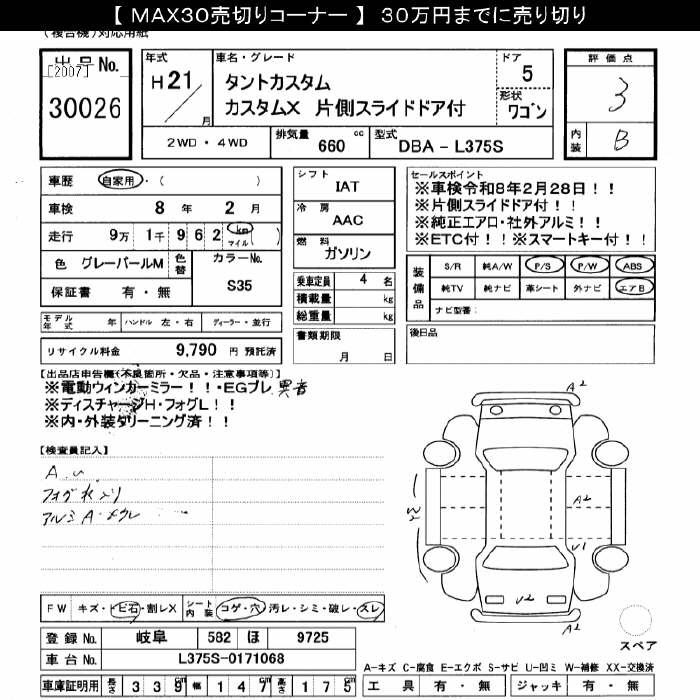 【 MAX30売切りコーナー 】 30万円までに売り切り
(複合機)対応用紙
出品No.
[2007]
30026
年式
H21/
月
車名・グレード
タントカスタム
カスタムX 片側スライドドア付
ドア
5
形状
ワゴン
評価点
3
内装
B
2WD・4WD
排気量
660
cc
型式
DBA - L375S
車歴
自家用・( )
車検
8 年 2 月
走行
9万 1千 9 6 2
km
マイル
( )
色
グレーパールM
色替
カラーNo.
S35
保証書 有・無
シフト
IAT
冷房
AAC
燃料
ガソリン
乗車定員 4 名
積載量 kg
総重量 kg
セールスポイント
※車検令和8年2月28日!!
※片側スライドドア付!!
※純正エアロ・社外アルミ!!
※ETC付!!※スマートキー付!!
装備品
S/R 純A/W P/S P/W ABS
純TV 純ナビ 革シート 外ナビ エアB
ナビ型番:
モデル年式 年
ハンドル 左・右
ディーラー・並行
リサイクル料金 9,790 円 預託済
書類期限
月 日
後日品
【出品店申告欄(不良箇所・欠品・注意事項等)】
※電動ウィンカーミラー!!・EGブレ 異音
※ディスチャージH・フォグL!!
※内・外装クリーニング済!!
【検査員記入】
フォグ水入り
A2
W2
A2
U1
U2
A2
スペア
FW キズ・トビ石・割レX
シート内装
コゲ・穴 汚レ・シミ・破レ・スレ
登録No. 岐阜 582 ほ 9725
車台No. L375S-0171068
車庫証明用 長さ 3 3 9 cm 幅 1 4 7 cm 高さ 1 7 5 cm
A-キズ C-腐食 E-エクボ S-サビ U-凹ミ W-補修 XX-交換済
工具 有・無 ジャッキ 有・無